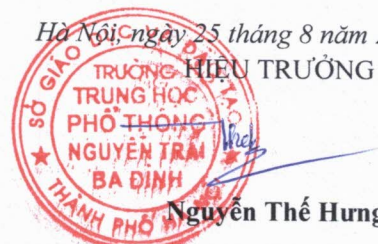 Hà Nội, ngày 25 tháng 8 năm
HIỆU TRƯỞNG
SỞ GIÁO DỤC VÀ ĐÀO TẠO
TRƯỜNG
TRUNG HỌC
PHỔ THÔNG
NGUYỄN TRÃI
BA ĐÌNH
THÀNH PHỐ
Nguyễn Thế Hưng